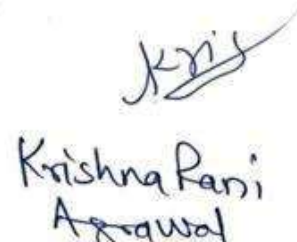 Kris
Krishna Rani
Agrawal